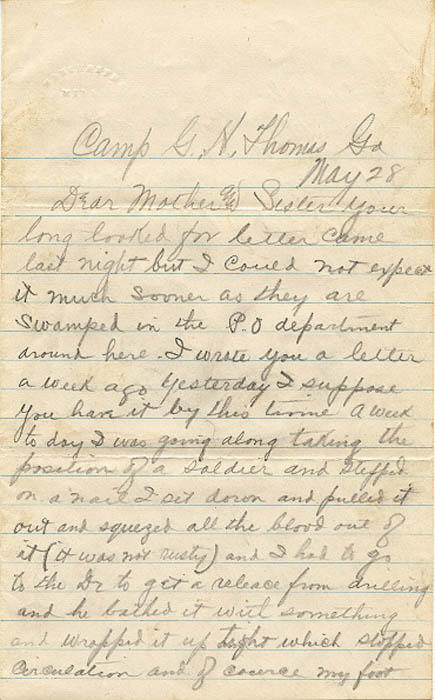 Camp G. H. Thomas Ga
May 28
Dear Mother & Sister your
long looked for letter came
last night but I could not expect
it much sooner as they are
swamped in the P.O department
around here. I wrote you a letter
a week ago yesterday I suppose
you have it by this time A week
to day I was going along taking the
position of a soldier and stepped
on a nail I set down and pulled it
out and squezed all the blood out of
it (it was not rusty) and I had to go
to the Dr to get a release from drilling
and he bathed it with something
and wrapped it up tight which stopped
circulation and of cource my foot